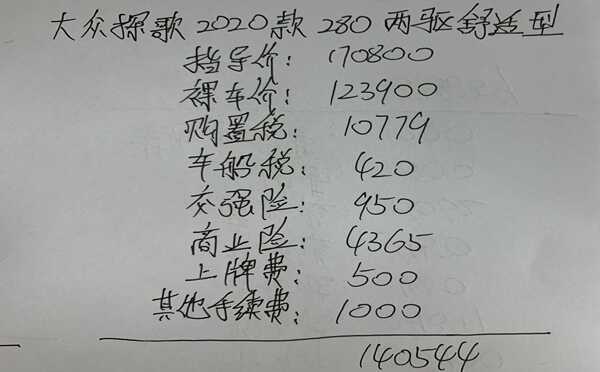 大众探歌2020款280两驱舒适型
指导价：170800
裸车价：123900
购置税：10779
车船税：420
交强险：950
商业险：4365
上牌费：500
其他手续费：1000
140544